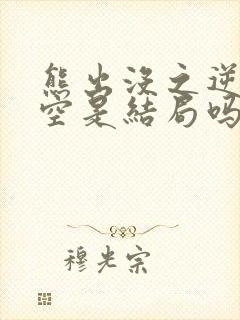 熊出没之逆
空是結局吗
穆光宗